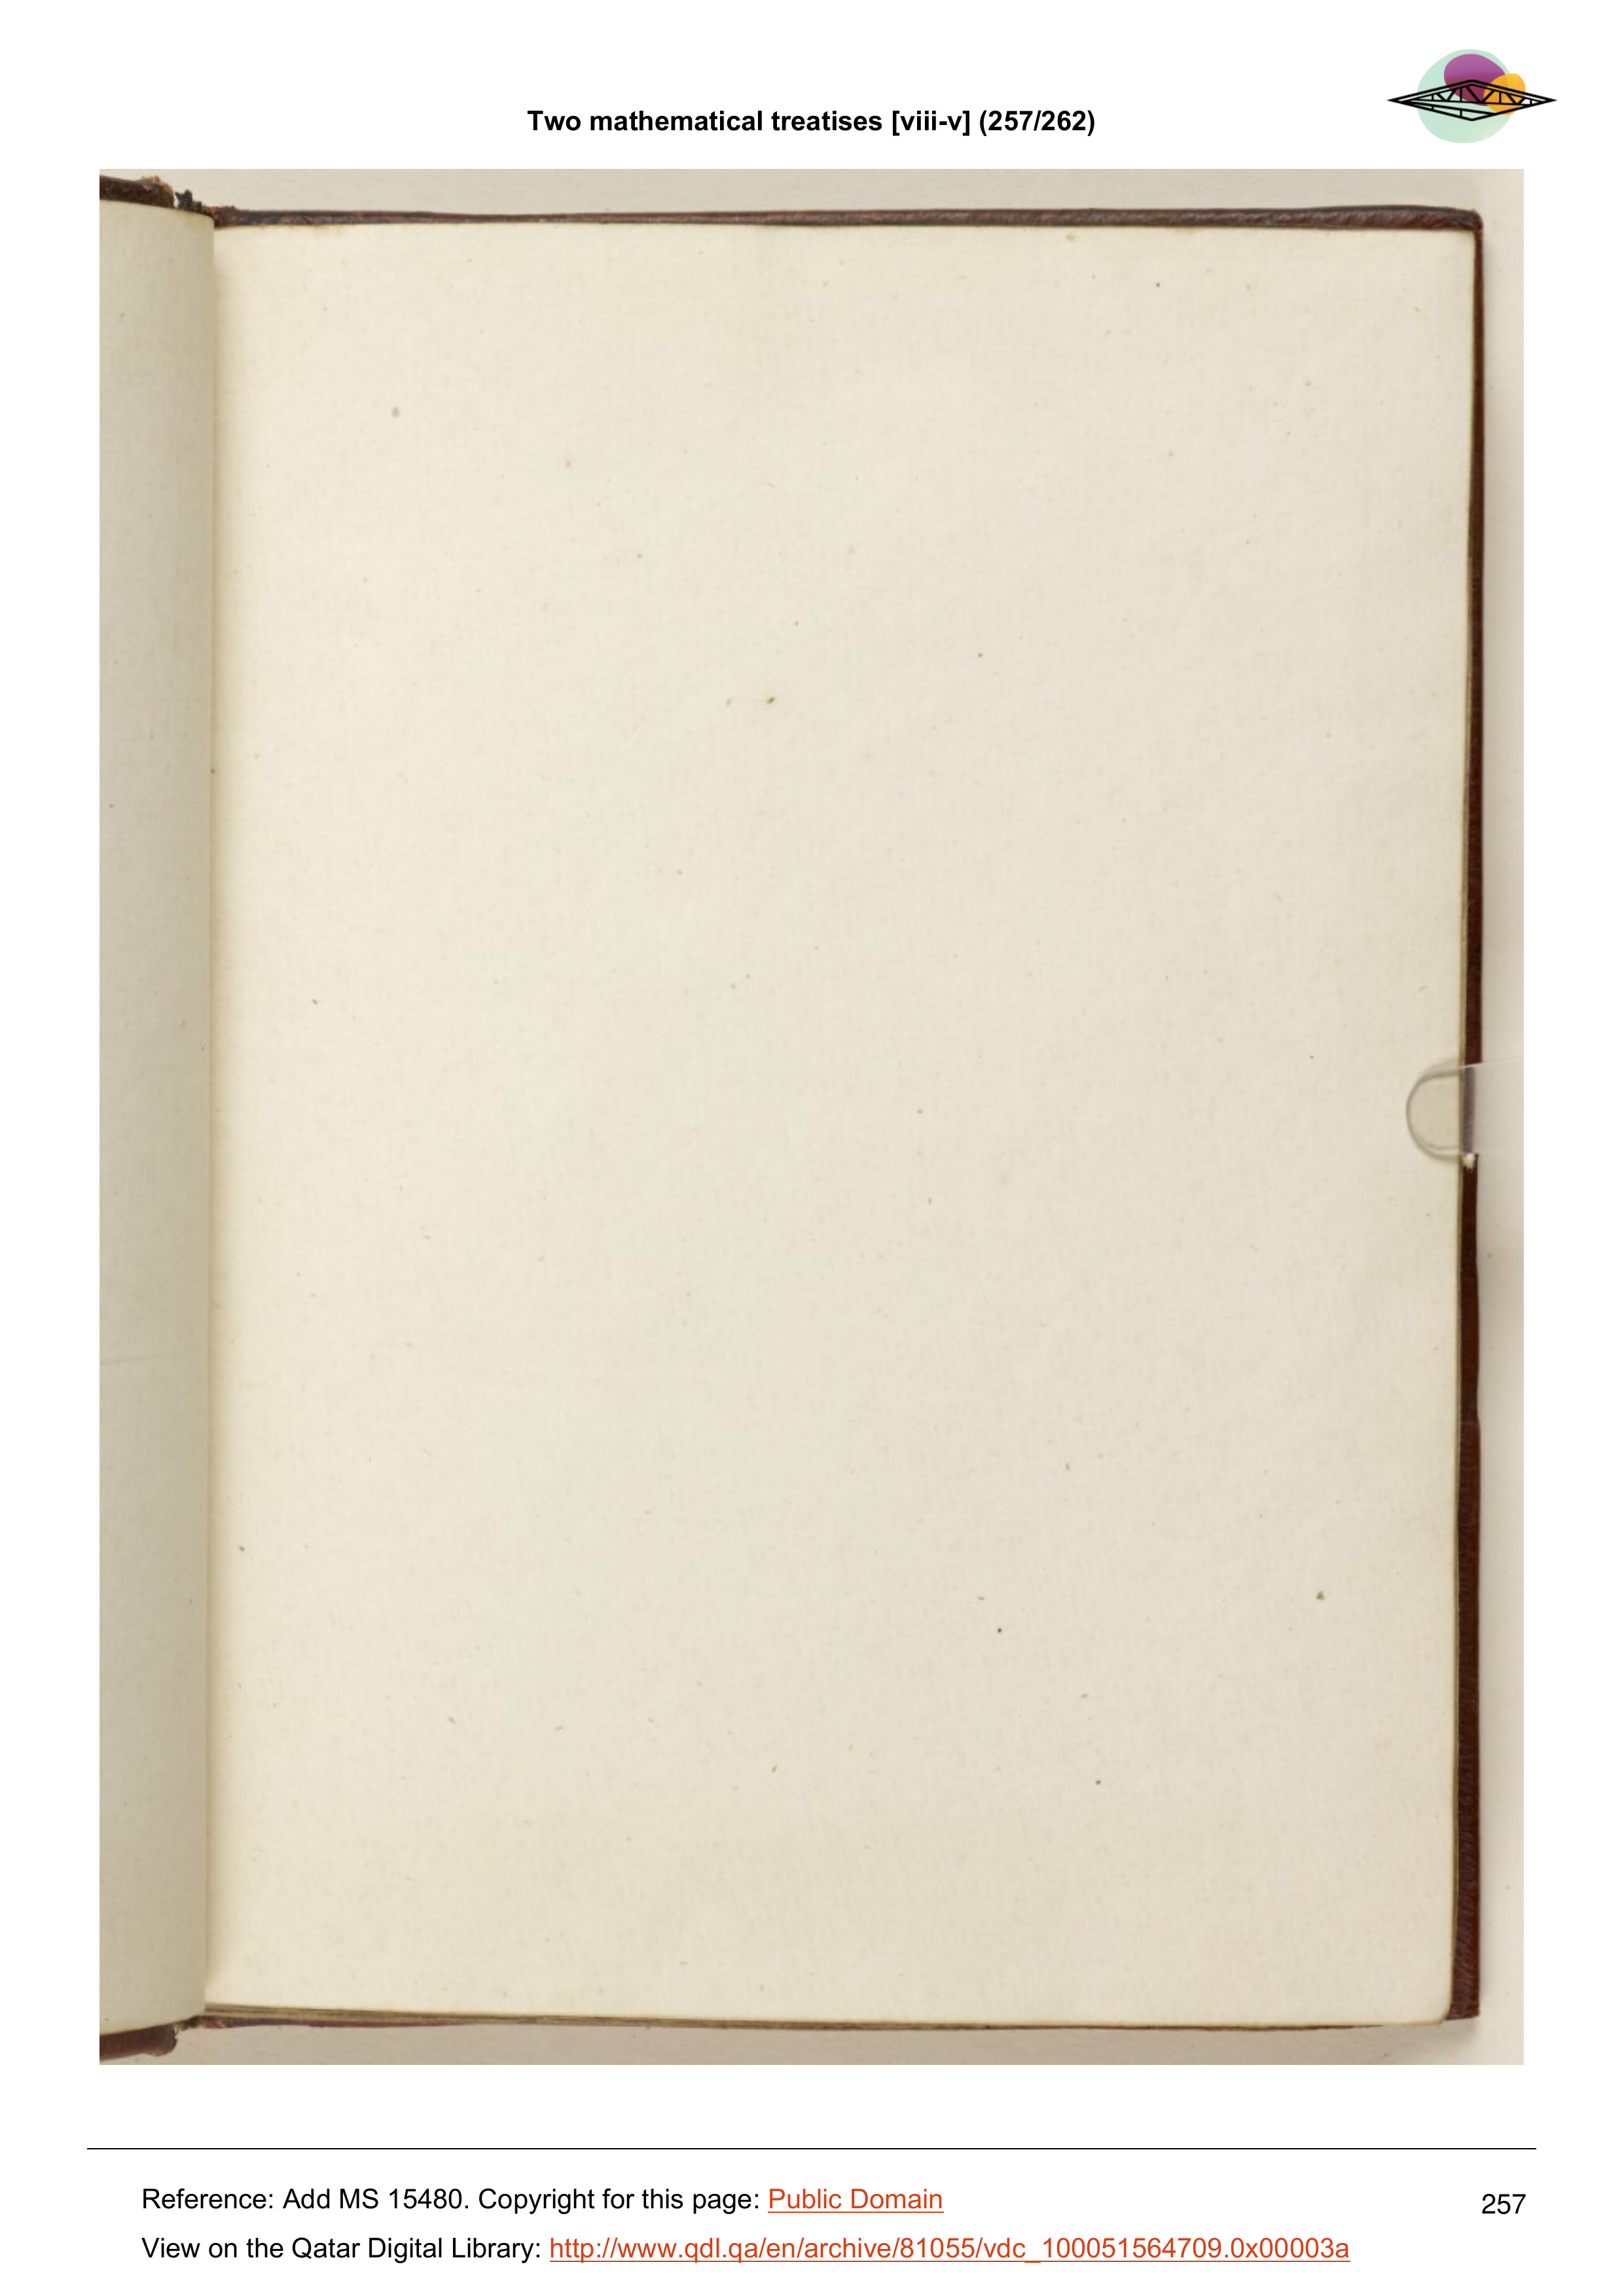 Two mathematical treatises [viii-v] (257/262)
Reference: Add MS 15480. Copyright for this page: Public Domain
257
View on the Qatar Digital Library: http://www.qdl.qa/en/archive/81055/vdc_100051564709.0x00003a